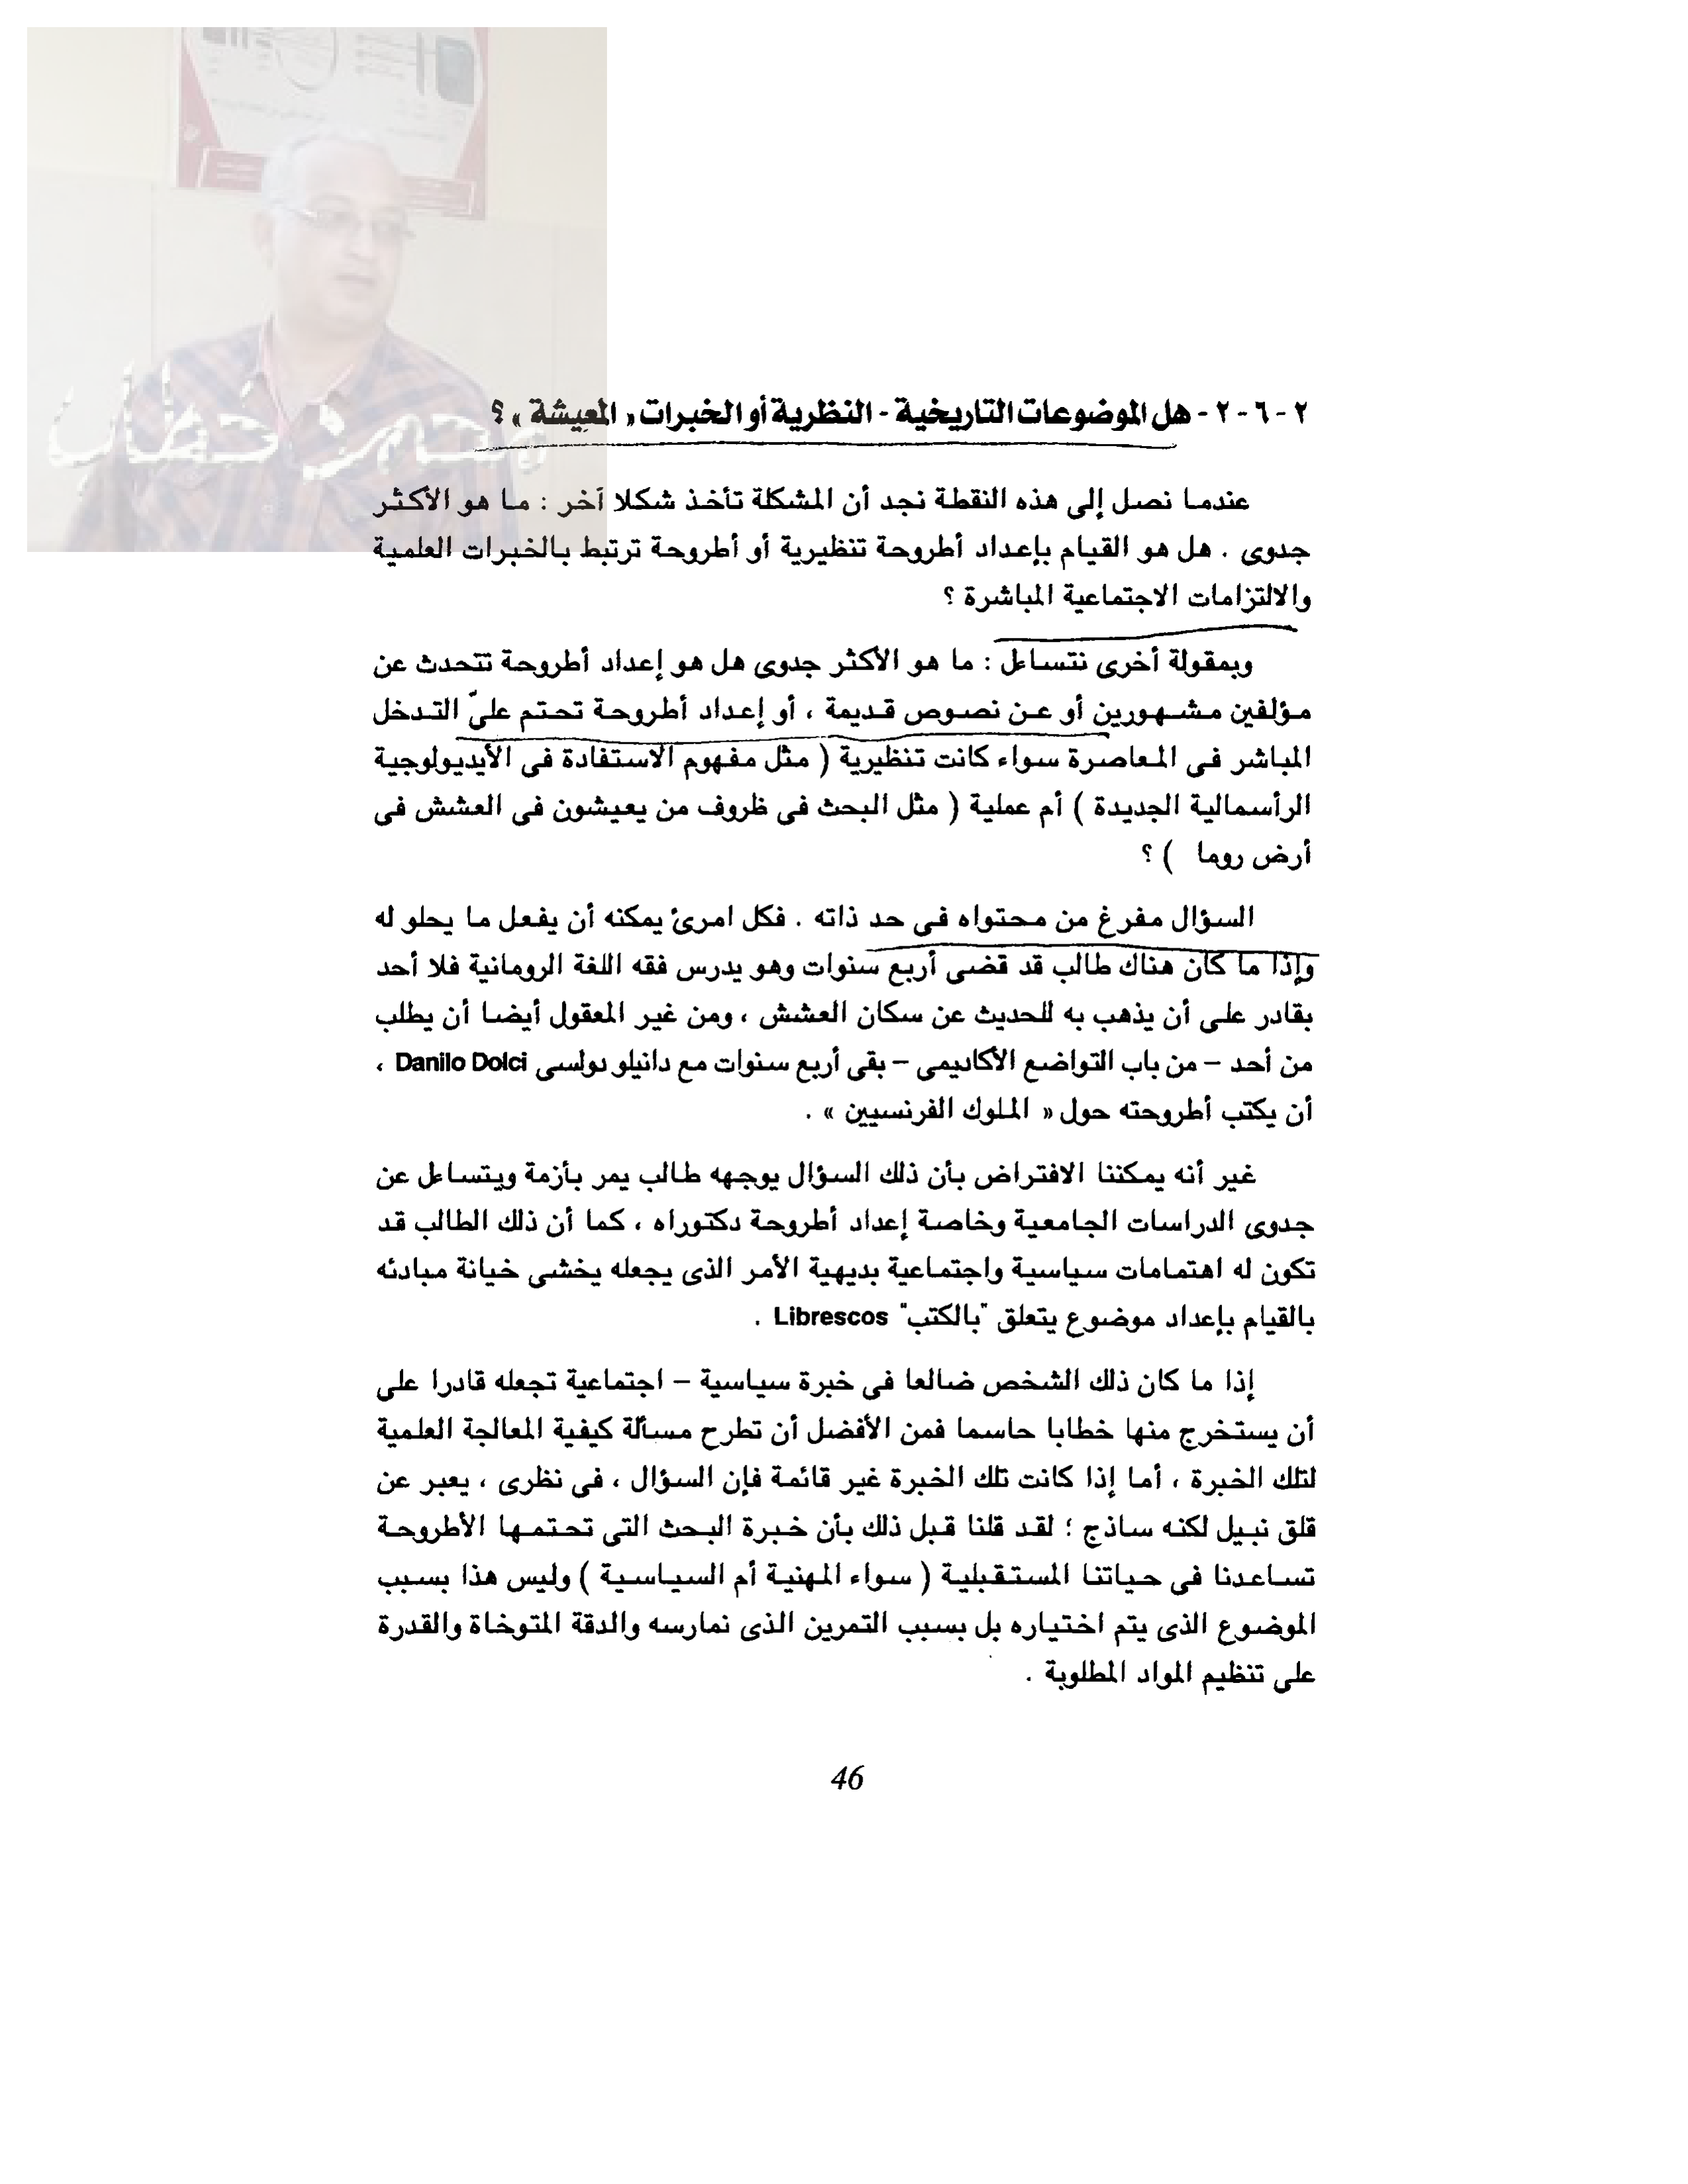 محمد خطاب
٢-٦-٢- هل الموضوعات التاريخية - النظرية أو الخبرات « المعيشة » ؟
عندما نصل إلى هذه النقطة نجد أن المشكلة تأخذ شكلا آخر : ما هو الأكثر
جدوى . هل هو القيام بإعداد أطروحة تنظيرية أو أطروحة ترتبط بالخبرات العلمية
والالتزامات الاجتماعية المباشرة ؟
وبمقولة أخرى نتساءل : ما هو الأكثر جدوى هل هو إعداد أطروحة تتحدث عن
مؤلفين مشهورين أو عن نصوص قديمة ، أو إعداد أطروحة تحتم علىّ التدخل
المباشر فى المعاصرة سواء كانت تنظيرية ( مثل مفهوم الاستفادة فى الأيديولوجية
الرأسمالية الجديدة ) أم عملية ( مثل البحث فى ظروف من يعيشون فى العشش فى
أرض روما ) ؟
السؤال مفرغ من محتواه فى حد ذاته . فكل امرئ يمكنه أن يفعل ما يحلو له
وإذا ما كان هناك طالب قد قضى أربع سنوات وهو يدرس فقه اللغة الرومانية فلا أحد
بقادر على أن يذهب به للحديث عن سكان العشش ، ومن غير المعقول أيضا أن يطلب
من أحد – من باب التواضع الأكاديمى – بقى أربع سنوات مع دانيلو دولسى Danilo Dolci ،
أن يكتب أطروحته حول « الملوك الفرنسيين » .
غير أنه يمكننا الافتراض بأن ذلك السؤال يوجهه طالب يمر بأزمة ويتساءل عن
جدوى الدراسات الجامعية وخاصة إعداد أطروحة دكتوراه ، كما أن ذلك الطالب قد
تكون له اهتمامات سياسية واجتماعية بديهية الأمر الذى يجعله يخشى خيانة مبادئه
بالقيام بإعداد موضوع يتعلق "بالكتب" Librescos .
إذا ما كان ذلك الشخص ضالعا فى خبرة سياسية – اجتماعية تجعله قادرا على
أن يستخرج منها خطابا حاسما فمن الأفضل أن تطرح مسألة كيفية المعالجة العلمية
لتلك الخبرة ، أما إذا كانت تلك الخبرة غير قائمة فإن السؤال ، فى نظرى ، يعبر عن
قلق نبيل لكنه ساذج ؛ لقد قلنا قبل ذلك بأن خبرة البحث التى تحتمها الأطروحة
تساعدنا فى حياتنا المستقبلية ( سواء المهنية أم السياسية ) وليس هذا بسبب
الموضوع الذى يتم اختياره بل بسبب التمرين الذى نمارسه والدقة المتوخاة والقدرة
على تنظيم المواد المطلوبة .
46